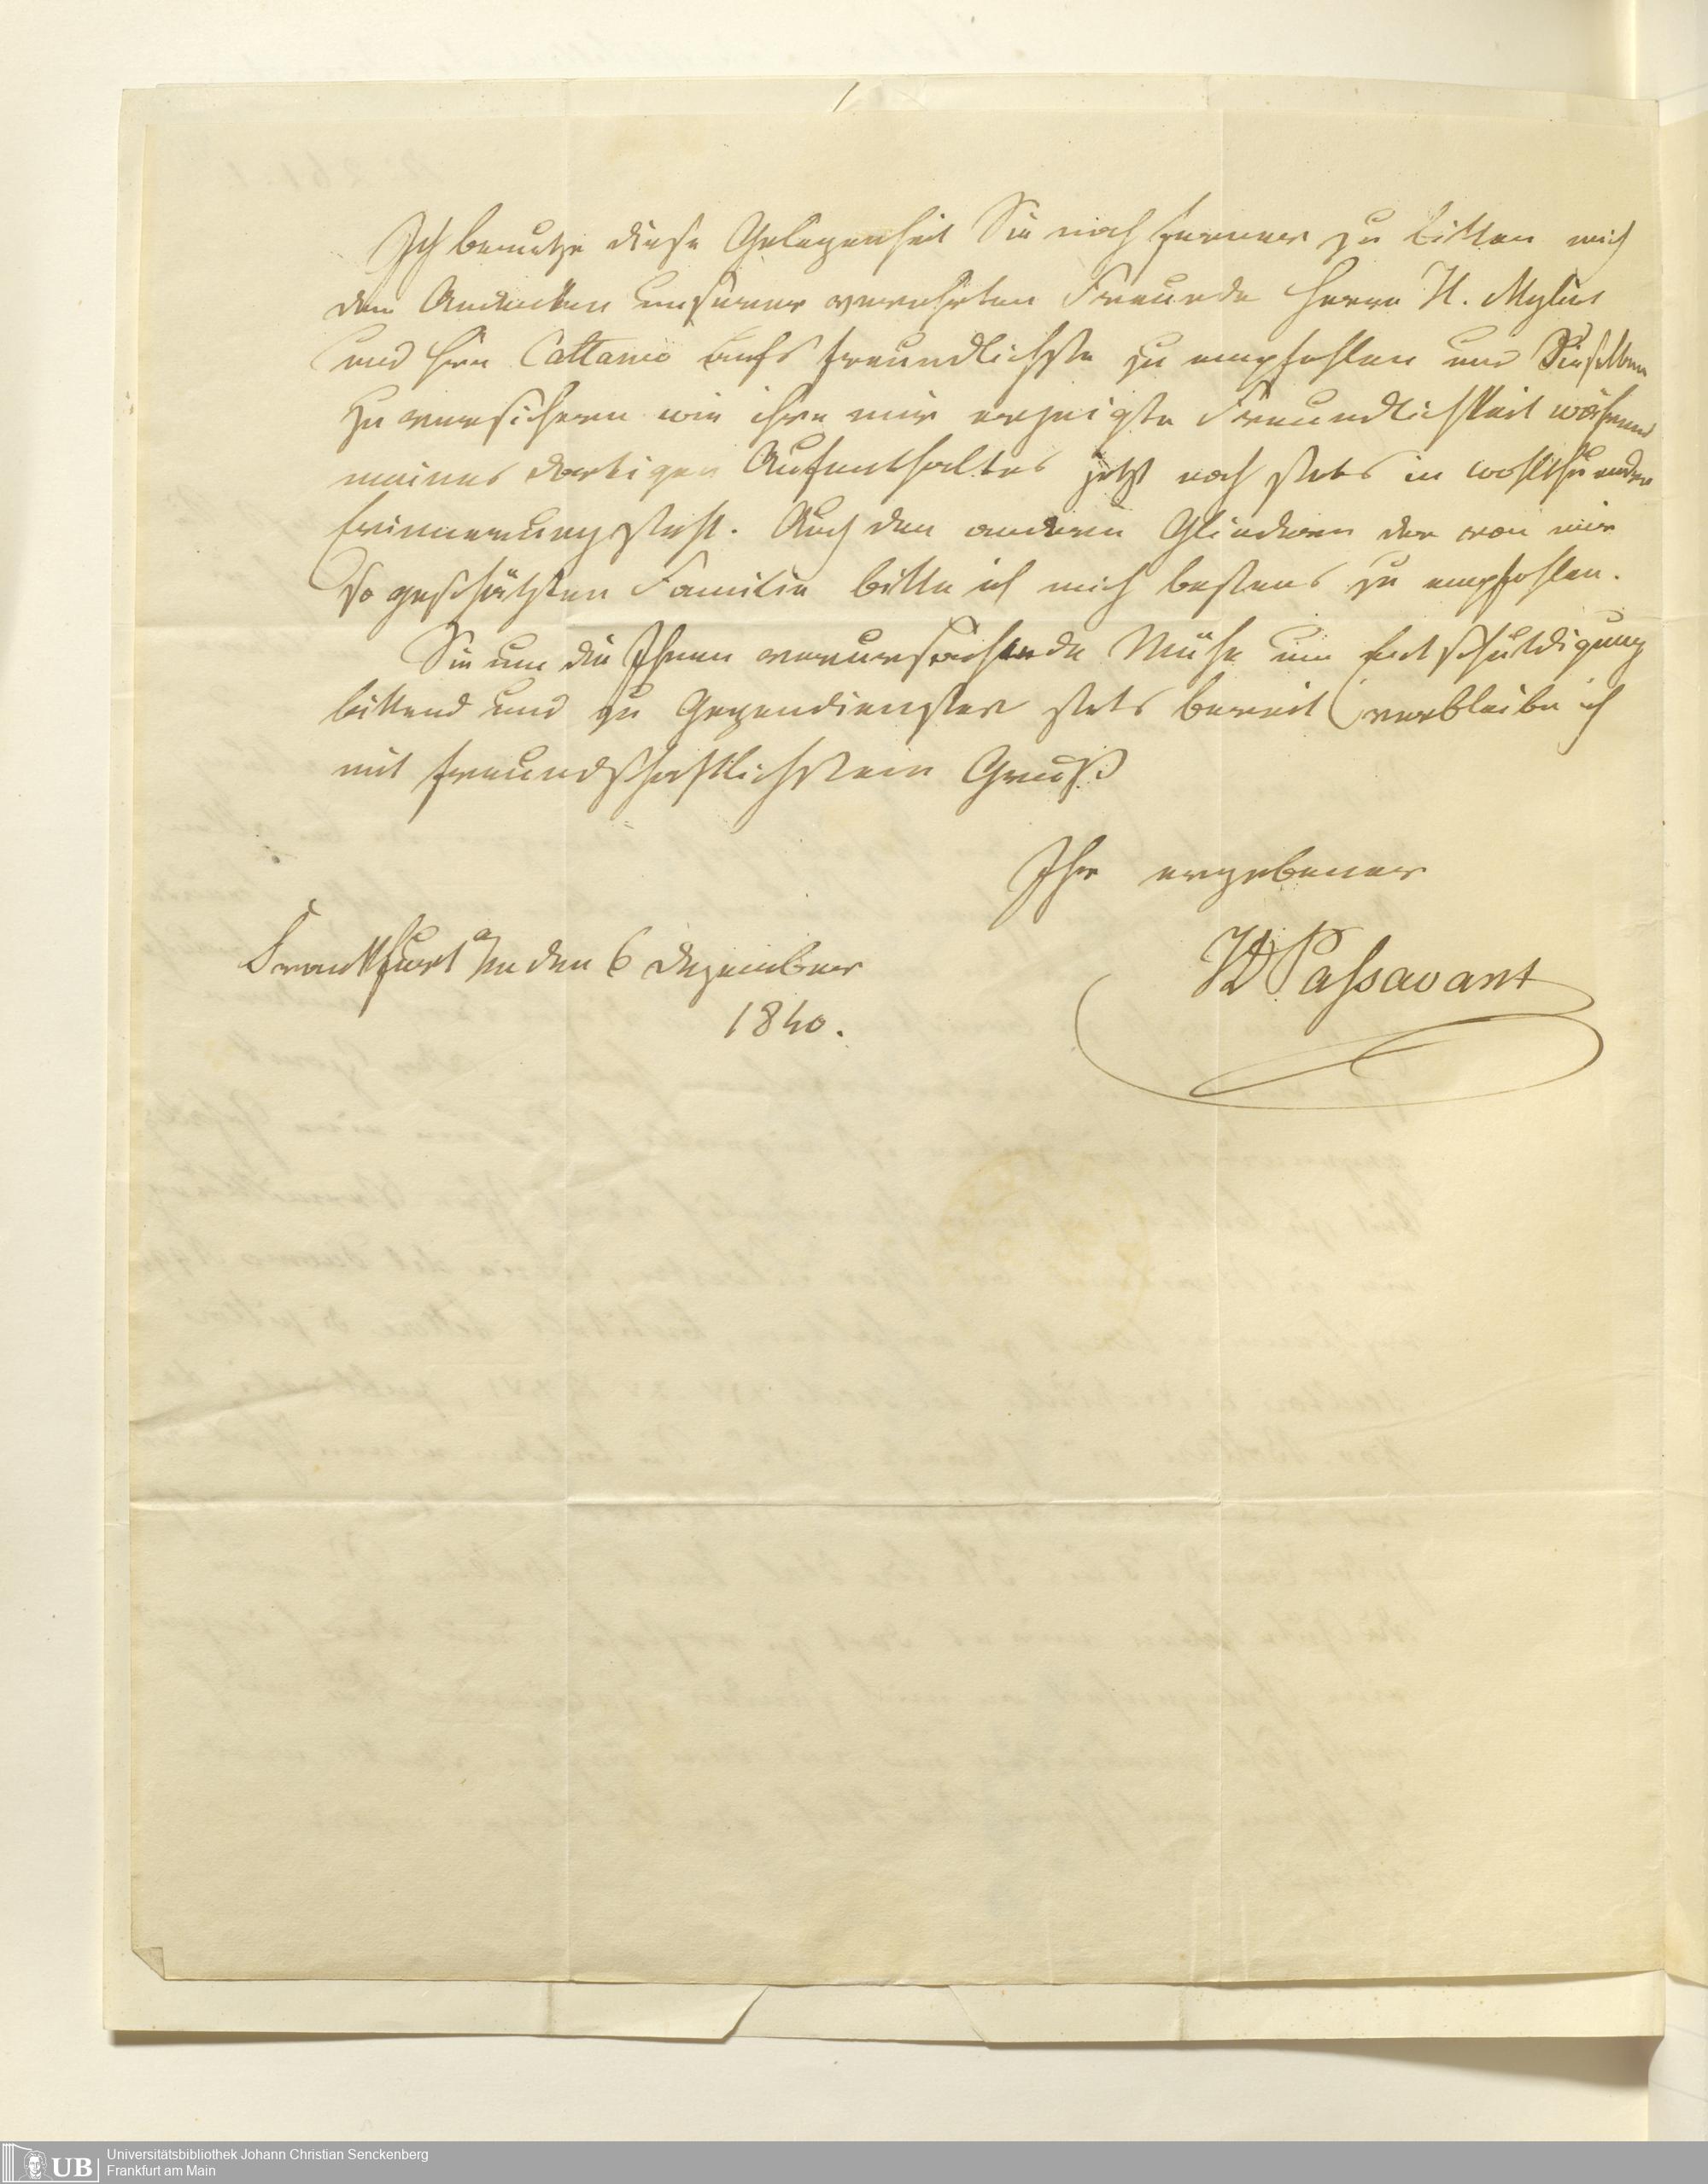 Ich benutze diese Gelegenheit Sie noch ferner zu bitten mich
dem Andenken unserer verehrten Freunde Herrn H. Mylius
und Hrn Cattaneo aufs freundlichste zu empfehlen und Dieselben
zu versichern wie ihre mir erzeigte Freundlichkeit während
meines dortigen Aufenthaltes jetzt noch stets in wohlthuender
Erinnerung steht. Auch den andern Gliedern der von mir
so geschätzten Familie bitte ich mich bestens zu empfehlen.
Sie um die Ihnen verursachende Mühe um Entschuldigung
bittend und zu Gegendiensten stets bereit verbleibe ich
mit freundschaftlichstem Gruß
Ihr ergebener
JD Passavant
Frankfurt a/m den 6 Dezember
1840.
UB
Universitätsbibliothek Johann Christian Senckenberg
Frankfurt am Main